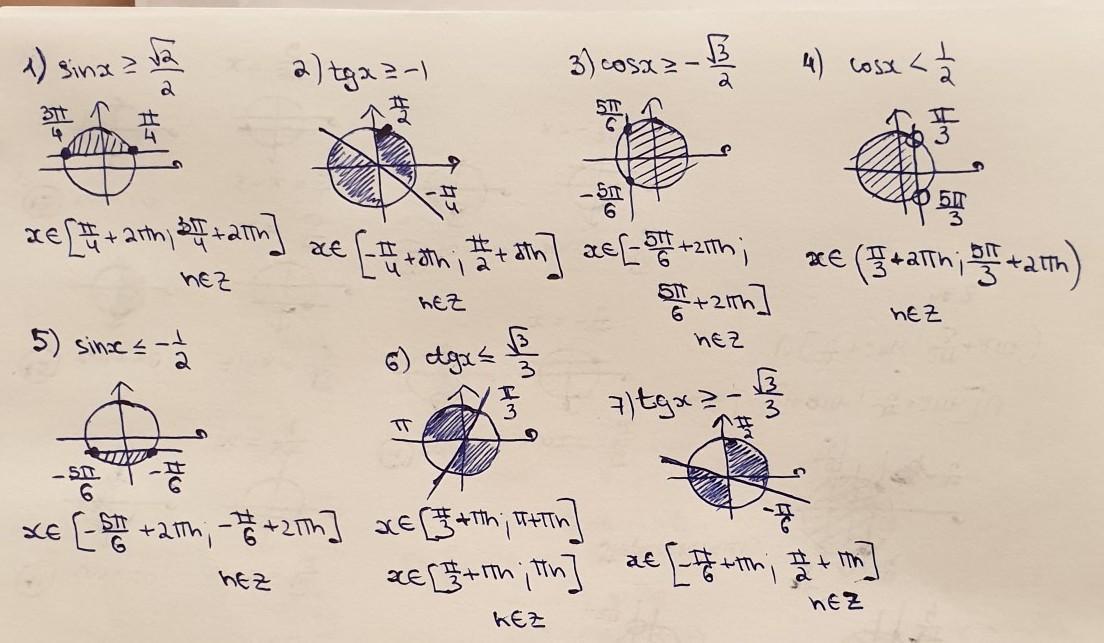 1) sinx ≥ √2/2
3π/4 π/4
x∈[π/4+2πn; 3π/4+2πn]
n∈Z
2) tgx ≥ -1
π/2
-π/4
x∈[-π/4+πn; π/2+πn]
n∈Z
3) cosx ≥ -√3/2
5π/6
-5π/6
x∈[-5π/6+2πn;
5π/6+2πn]
n∈Z
4) cosx < 1/2
π/3
5π/3
x∈(π/3+2πn; 5π/3+2πn)
n∈Z
5) sinx ≤ -1/2
-5π/6 -π/6
x∈[-5π/6+2πn; -π/6+2πn]
n∈Z
6) ctgx ≤ √3/3
π π/3
x∈[π/3+πn; π+πn]
x∈[π/3+πn; πn]
n∈Z
7) tgx ≥ -√3/3
π/2
-π/6
x∈[-π/6+πn; π/2+πn]
n∈Z